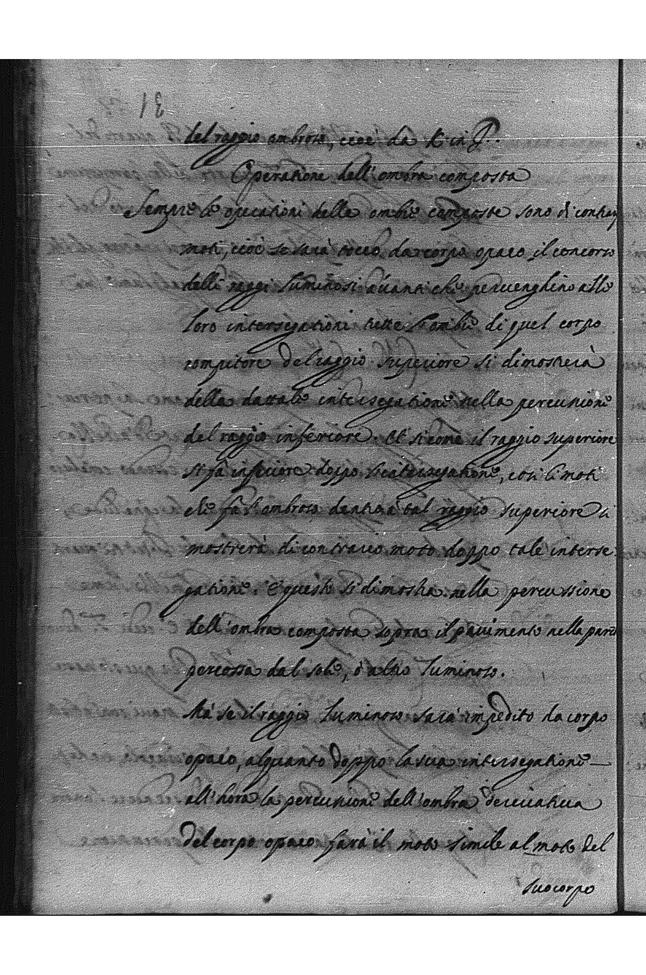 31
del raggio ombroso, cioè da K in P.
Operatione dell'ombra composta
Sempre le operationi della ombre composte sono di contrarj
moti, cioè se sarà tocco da corpo opaco il concorso
delli raggi luminosi avanti che pervenghino alle
loro intersegationi tutte l'ombre di quel corpo
rompitore del raggio superiore si dimosterà
della dattale intersegatione nella percussione
del raggio inferiore. Et si come il raggio superiore
si fa inferiore doppo l'intersegatione, così li moti
che fa l'ombroso dentro a tal raggio superiore si
mostrerà di contrario moto doppo tale interse
gatione. E questo si dimostra nella percussione
dell'ombra composta sopra il pavimento nella parte
percossa dal sole, ò altro luminoso.
Ma se il raggio luminoso sarà impedito da corpo
opaco, alquanto doppo la sua intersegatione
all'hora la percussione dell'ombra derivativa
del corpo opaco farà il moto simile al moto del
suo corpo